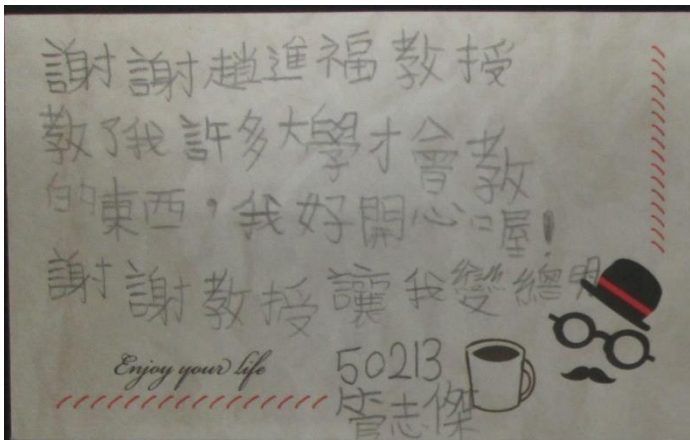 謝謝趙進福教授
教了我許多大學才會教
的東西,我好開心喔!
謝謝教授讓我變總明
Enjoy your life
50213
管志傑